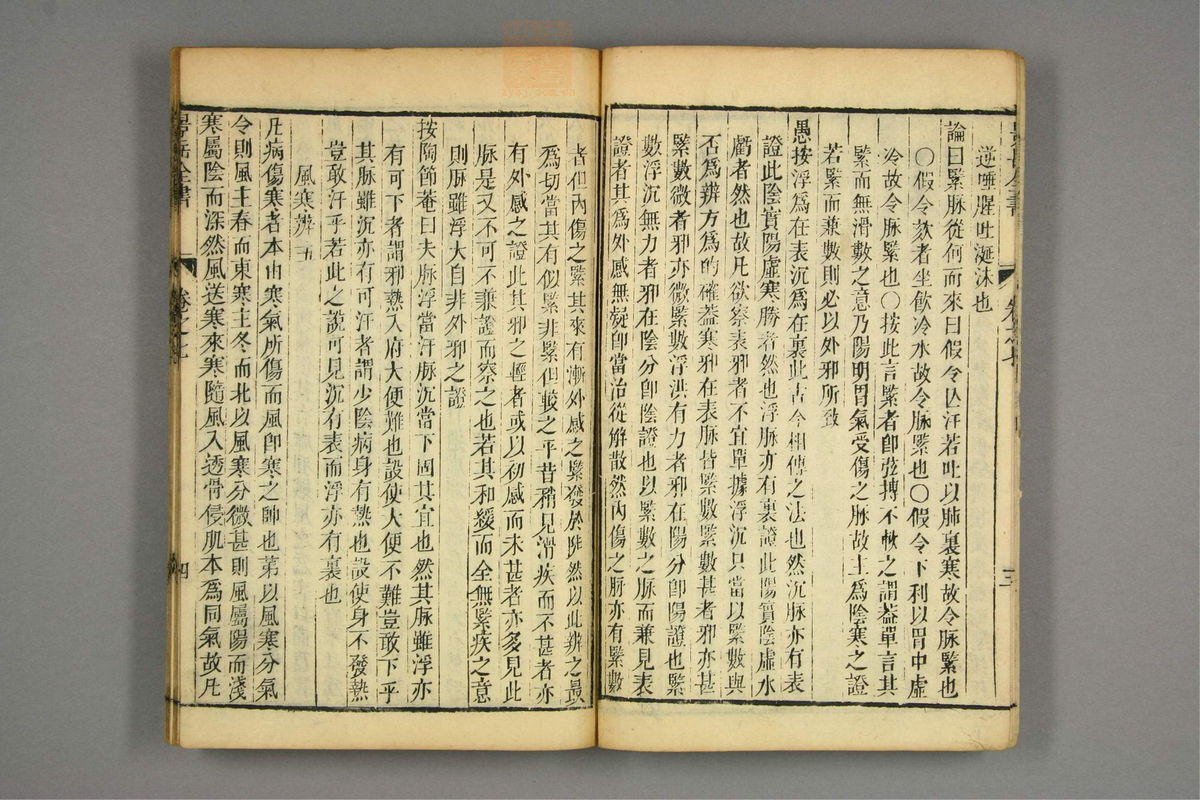 逆唾腥吐涎沫也
論曰緊脉從何而來曰假令亡汗若吐以肺裏寒故令脉緊也
〇假令欬者坐飲冷水故令脉緊也〇假令下利以胃中虛
冷故令脉緊也〇按此言緊者卽弦搏不軟之謂葢單言其
緊而無滑數之意乃陽明胃氣受傷之脉故主爲陰寒之證
若緊而兼數則必以外邪所致
愚按浮爲在表沉爲在裏此古今相傳之法也然沉脉亦有表
證此陰實陽虛寒勝者然也浮脉亦有裏證此陽實陰虛水
虧者然也故凡欲察表邪者不宜單據浮沉只當以緊數與
否爲辨方爲的確葢寒邪在表脉皆緊數緊數甚者邪亦甚
緊數微者邪亦微緊數浮洪有力者邪在陽分卽陽證也緊
數浮沉無力者邪在陰分卽陰證也以緊數之脉而兼見表
證者其爲外感無疑卽當治從解散然內傷之脉亦有緊數
者但內傷之緊其來有漸外感之緊發於陡然以此辨之最
爲切當其有似緊非緊但較之平昔稍見滑疾而不甚者亦
有外感之證此其邪之輕者或以初感而未甚者亦多見此
脉是又不可不兼證而察之也若其和緩而全無緊疾之意
則脉雖浮大自非外邪之證
按陶節菴曰夫脉浮當汗脉沉當下固其宜也然其脉雖浮亦
有可下者謂邪熱入府大便難也設使大便不難豈敢下乎
其脉雖沉亦有可汗者謂少陰病身有熱也設使身不發熱
豈敢汗乎若此之說可見沉有表而浮亦有裏也
風寒辨 五
凡病傷寒者本由寒氣所傷而風卽寒之帥也第以風寒分氣
令則風主春而東寒主冬而北以風寒分微甚則風屬陽而淺
寒屬陰而深然風送寒來寒隨風入透骨侵肌本爲同氣故凡
景岳全書
卷之七
四
三